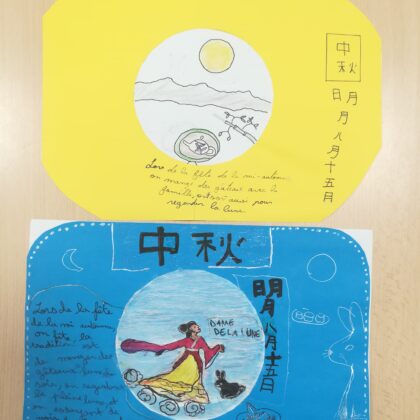 中秋
日月
月
八
月
十
五
月
Lors de la fête de la mi-automne,
on mange des gâteaux avec la
famille, on sort aussi pour
regarder la lune
中秋
明
八
月
十
五
日
DAME
DE LA LUNE
Lors de la fête
de la mi automne,
on fête la
tradition est
de manger des
gâteaux
soir, on regarde
la pleine lune et
on